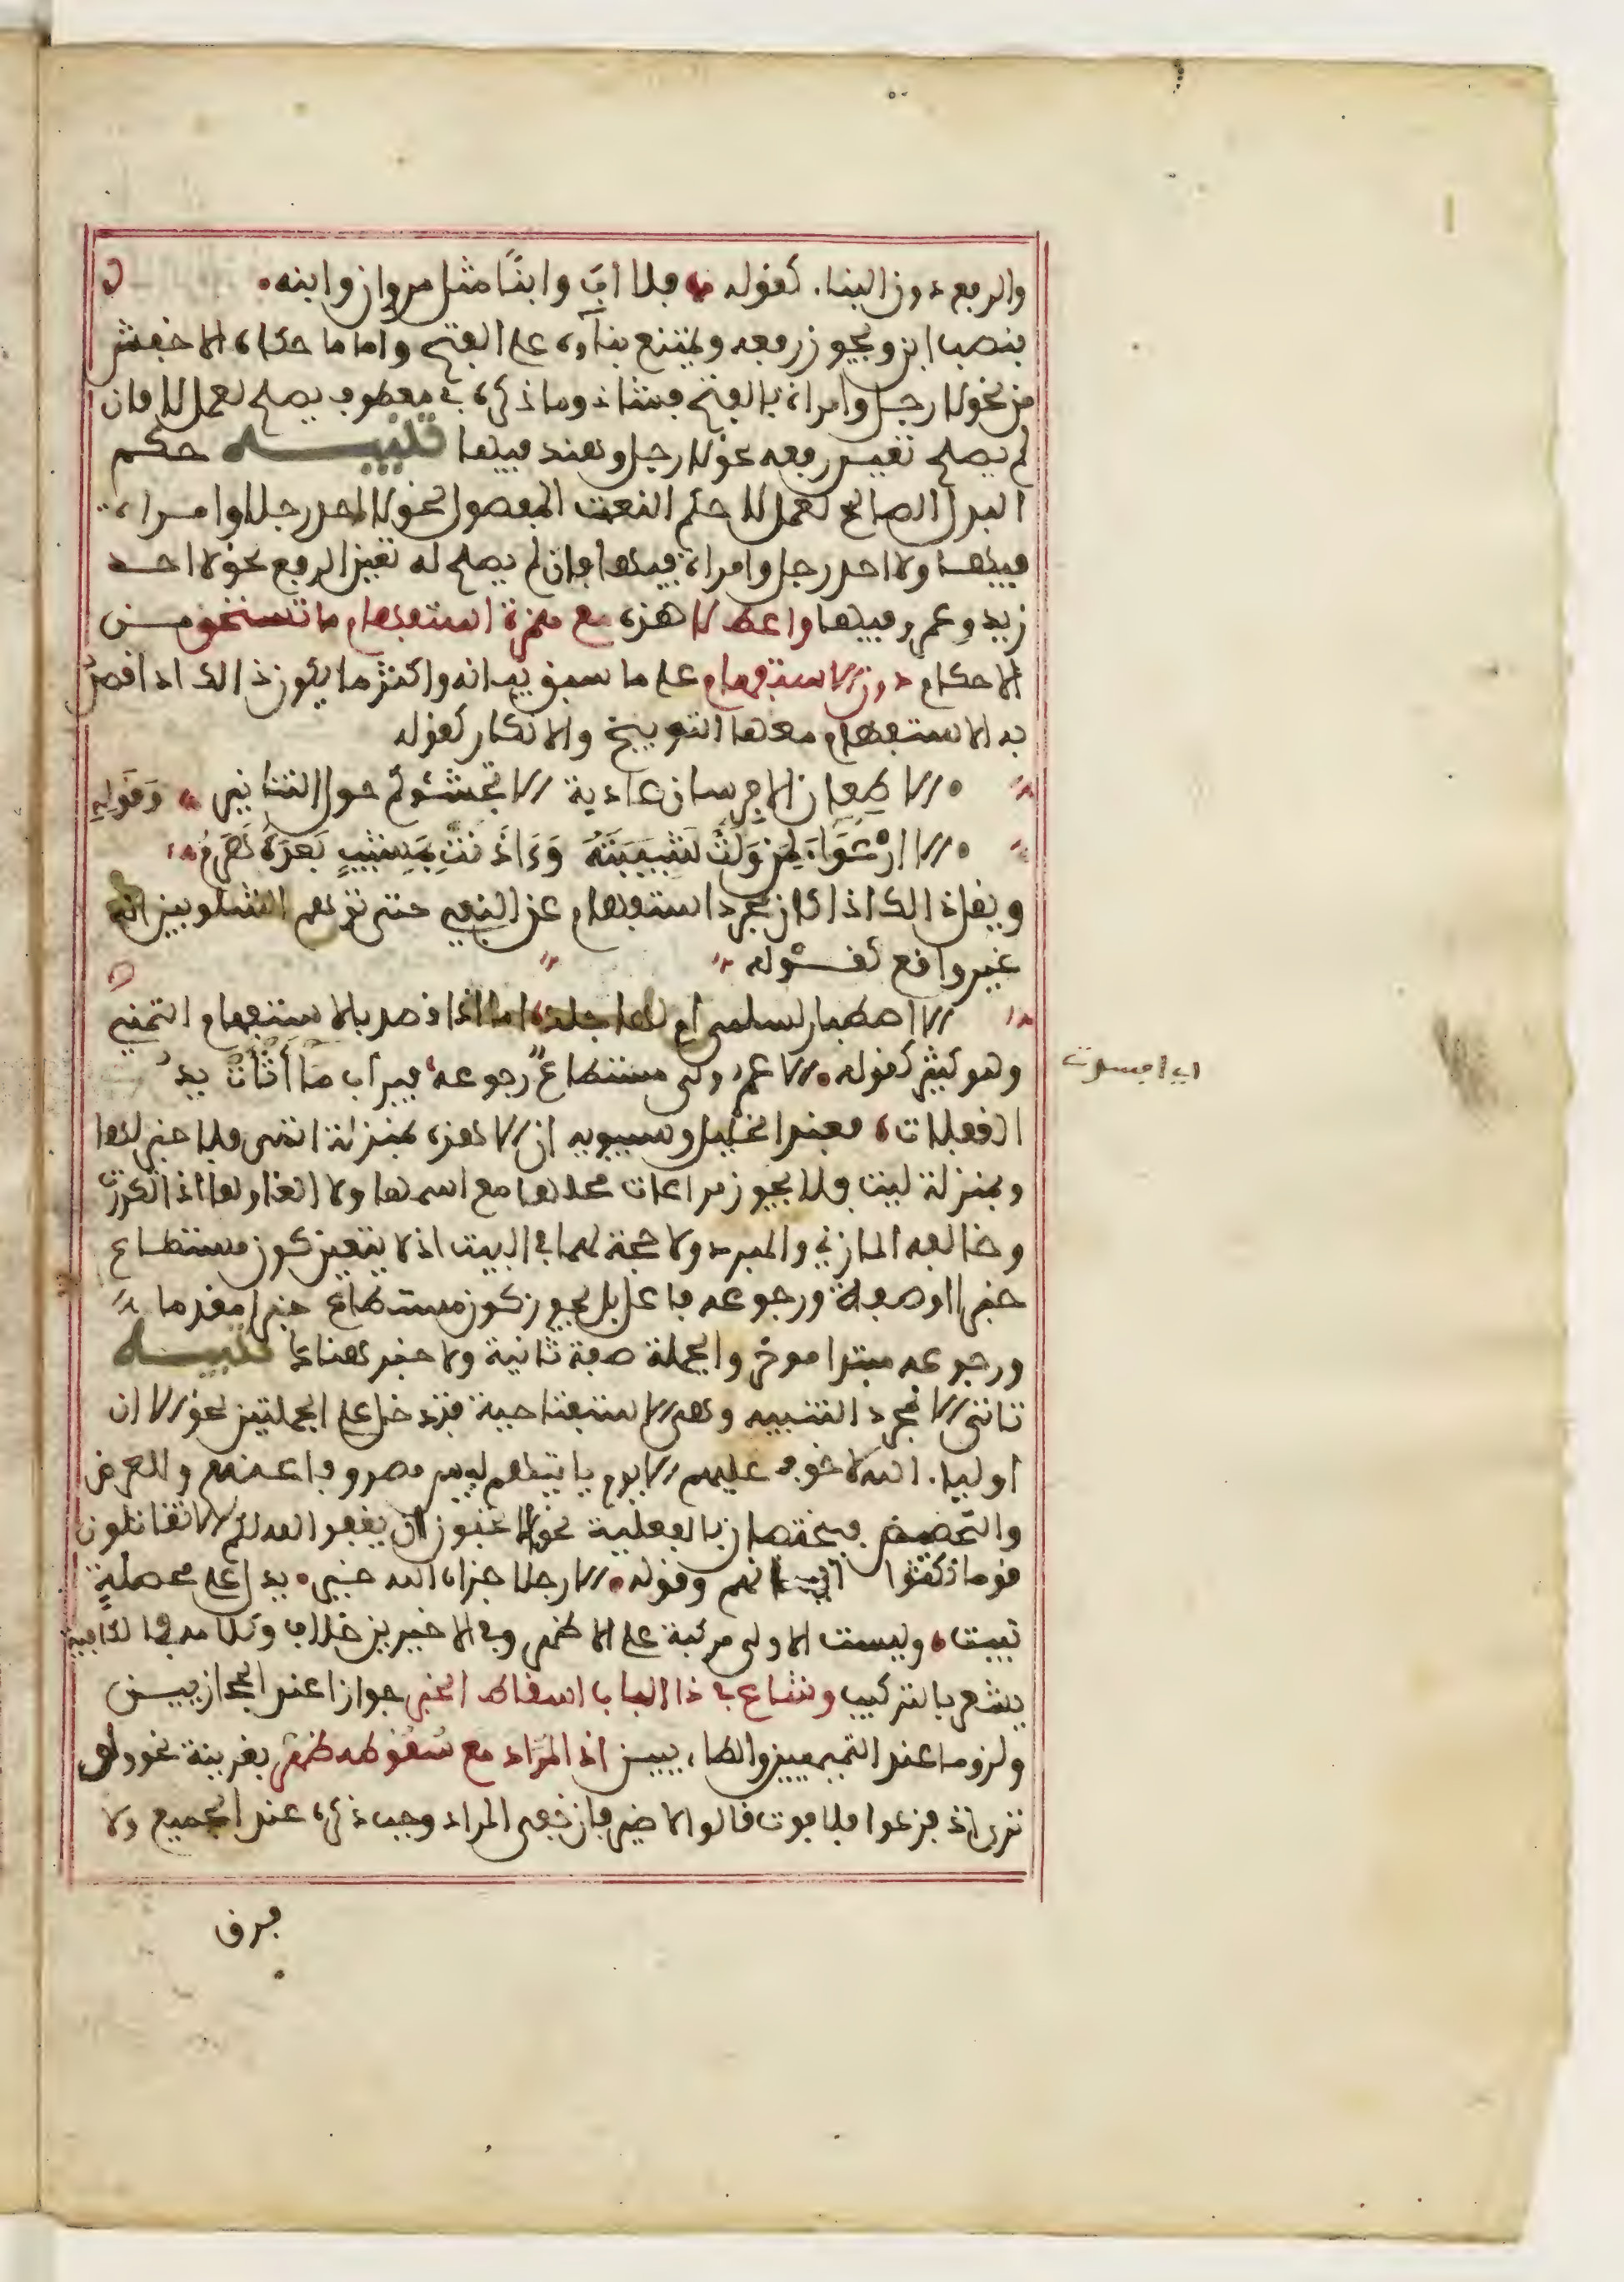 والرفع دون البنا. كقوله فلا اب وابنًا مثل مروان وابنه
بنصب ابن ويجوز رفعه ويمتنع بناؤه على الفتح واما ما حكاه الاخفش
من نحو لا رجل وامراة بالفتح فشاذ وما ذكره في معطوف يصلح لعمل لا فان
لم يصلح تعين رفعه نحو لا رجل وهند فيها تنبيـــه حكم
البدل الصالح لعمل لا حكم النعت المفصول نحو لا احد رجلا وامراة
فيها ولا احد رجل وامراة فيها فان لم يصلح له تعين الرفع نحو لا احد
زيد وعمرو فيها واعط لا هذه مع همزة استفهام ما تستحق من
الاحكام دون الاستفهام على ما سبق بيانه واكثر ما يكون ذالك اذا قصد
به الاستفهام معها التوبيخ والانكار كقوله
الا طعان الا فرسان عادية الا تجشؤكم حول التنانير وَقَوْلِهِ
الا ارْعِوَاءَ لِمَنْ وَلَّتْ شَبِيبَتُهُ وَءَاذَنَتْ بِمَشِيبٍ بَعْدَهُ هَرَمُ
ويقل ذالك اذا كان مجرد استفهام عن النفي حتى توهم الشلوبين انه
غير واقع كقـــوله
الا اصطبار لسلمى ام لها جلد اما اذا قصد بالا ستفهام التمني
وهو كثير كقوله الا عمر ولى مستطاع رجوعه فيراب ما أَثْأَتْ يد
الغفلات فعند الخليل وسيبويه ان الا هذه بمنزلة اتمنى فلا خبر لها
وبمنزلة ليت فلا يجوز مراعات محلها مع اسمها ولا الغاؤها اذا تكررت
وخالفه المازني والمبرد ولا حجة لهما في البيت اذ لا يتعين كون مستطاع
خبرا اوصفة ورجوعه فاعل بل يجوز كون مستطاع خبرا مقدما
ورجوعه مبتدا موخر والجملة صفة ثانية ولا خبر هناك تنبيـــه
تاتي الا لمجرد التنبيه وهي الاستفتاحية فتدخل على الجملتين نحو الا ان
اوليا. الله لا خوف عليهم الا يوم ياتيهم ليس مصروفا عنهم والعرض
والتحضيض فيختصان بالفعلية نحو الا تحبون ان يغفر الله لكم الا تقاتلون
قوما نكثوا ايمانهم وقوله الا رجلا جزاه الله خيرا يدل على محصلة
تبيت وليست الاولى مركبة على الاظهر وفي الاخيرين خلاف وكلامه في الكافية
يشعر بالتركيب وشاع في ذا الباب اسقاط الخبر جوازا عند الحجازيين
ولزوما عند التميميين والطاءيين اذ المراد مع سُقُوطه ظهر بقرينة نحو ولو
ترى اذ فزعوا فلا فوت قالوا لا ضير فان خفي المراد وجب ذكره عند الجميع ولا
فرق
اي افسدت